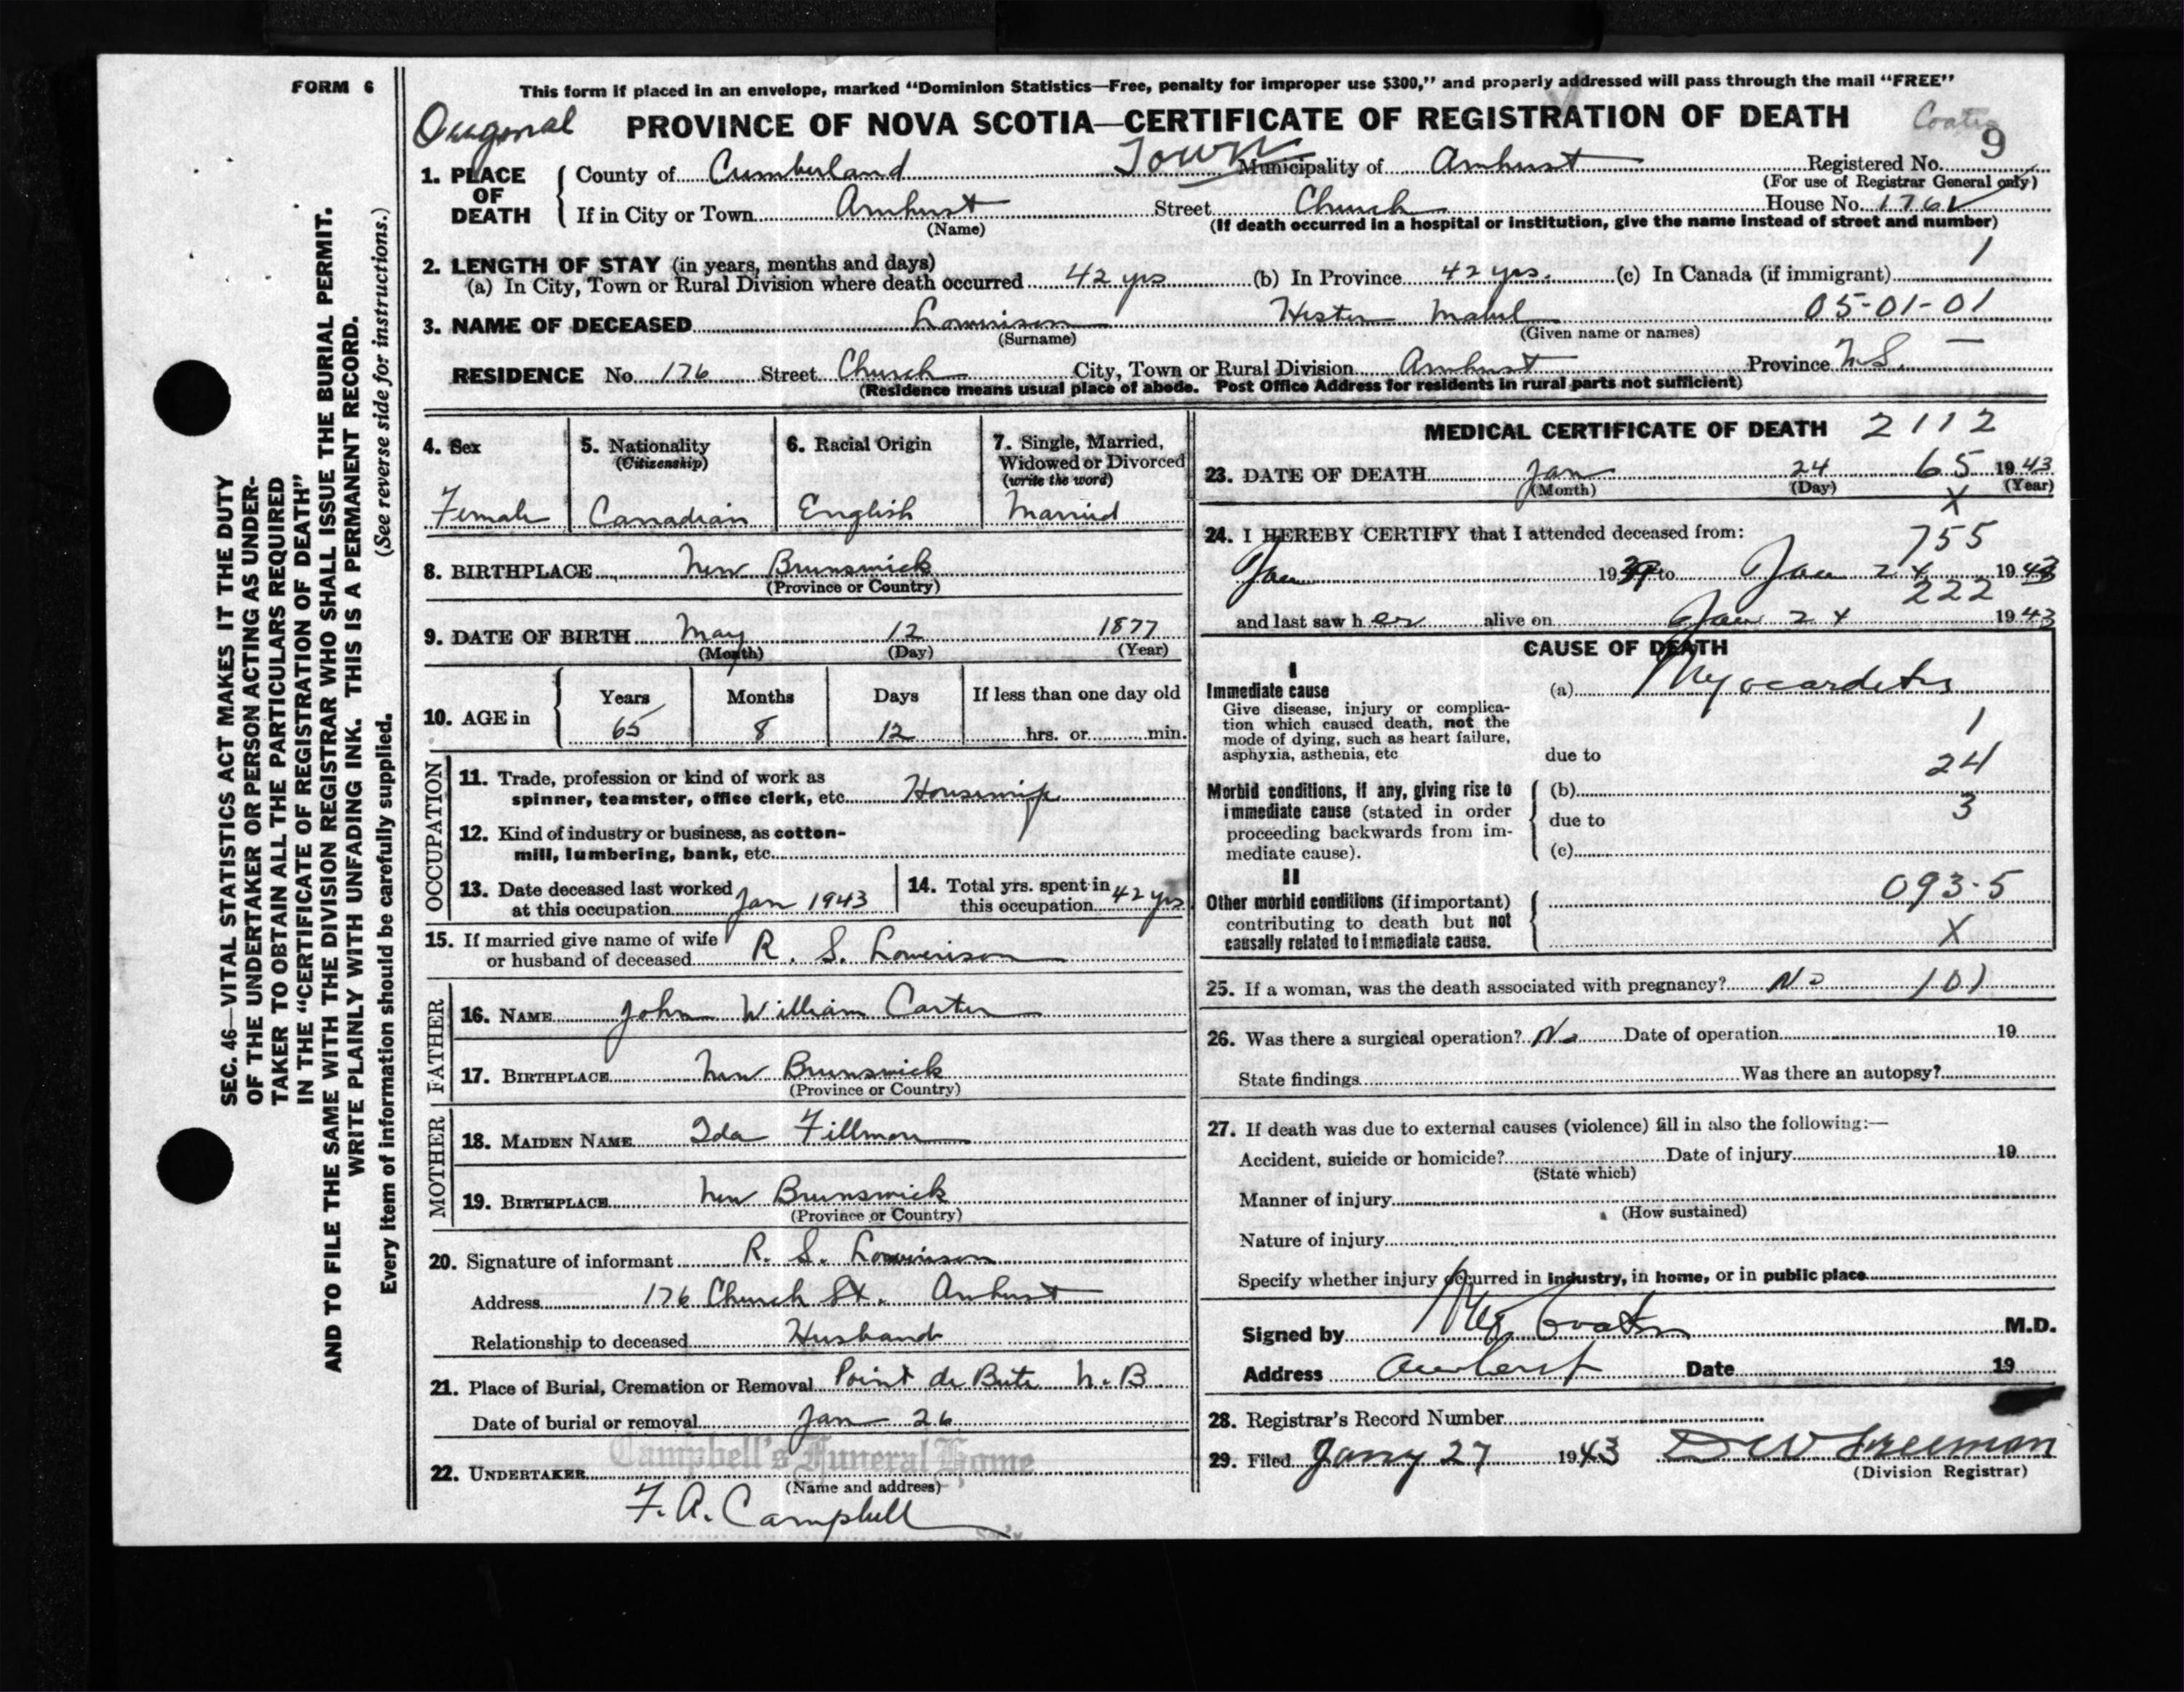 FORM 6
This form if placed in an envelope, marked "Dominion Statistics—Free, penalty for improper use $300," and properly addressed will pass through the mail "FREE"
Original PROVINCE OF NOVA SCOTIA—CERTIFICATE OF REGISTRATION OF DEATH
9
1. PLACE OF DEATH
County of Cumberland Town Municipality of Amherst Registered No.
(For use of Registrar General only)
If in City or Town Amherst Street Church House No. 176
(Name) (If death occurred in a hospital or institution, give the name instead of street and number)
2. LENGTH OF STAY (in years, months and days) 1
(a) In City, Town or Rural Division where death occurred 42 yrs (b) In Province 42 yrs. (c) In Canada (if immigrant)
3. NAME OF DECEASED Lowerison Hester Mabel 05-01-01
(Surname) (Given name or names)
RESIDENCE No. 176 Street Church City, Town or Rural Division Amherst Province N.S. —
(Residence means usual place of abode. Post Office Address for residents in rural parts not sufficient)
4. Sex
Female
5. Nationality
(Citizenship)
Canadian
6. Racial Origin
English
7. Single, Married,
Widowed or Divorced
(write the word)
Married
8. BIRTHPLACE New Brunswick
(Province or Country)
9. DATE OF BIRTH May 12 1877
(Month) (Day) (Year)
10. AGE in
Years Months Days If less than one day old
65 8 12 hrs. or min.
OCCUPATION
11. Trade, profession or kind of work as
spinner, teamster, office clerk, etc. Housewife
12. Kind of industry or business, as cotton-
mill, lumbering, bank, etc.
13. Date deceased last worked
at this occupation Jan 1943
14. Total yrs. spent in
this occupation 42 yrs
15. If married give name of wife
or husband of deceased R. S. Lowerison
FATHER
16. NAME John William Carter
17. BIRTHPLACE New Brunswick
(Province or Country)
MOTHER
18. MAIDEN NAME Ida Fillmore
19. BIRTHPLACE New Brunswick
(Province or Country)
20. Signature of informant R. S. Lowerison
Address 176 Church St. Amherst
Relationship to deceased Husband
21. Place of Burial, Cremation or Removal Point de Bute N.B
Date of burial or removal Jan 26
Campbell's Funeral Home
22. UNDERTAKER
(Name and address)
F. A. Campbell
MEDICAL CERTIFICATE OF DEATH 2112
23. DATE OF DEATH Jan 24 65 1943
(Month) (Day) (Year)
X
24. I HEREBY CERTIFY that I attended deceased from:
755
Jan 1939 to Jan 24 1943
222
and last saw her alive on Jan 24 1943
CAUSE OF DEATH
I
Immediate cause (a) Myocarditis
Give disease, injury or complica-
tion which caused death, not the
mode of dying, such as heart failure,
asphyxia, asthenia, etc due to
1
24
Morbid conditions, if any, giving rise to (b)
immediate cause (stated in order 3
proceeding backwards from im- due to
mediate cause). (c)
II
Other morbid conditions (if important) 093.5
contributing to death but not
causally related to immediate cause. X
25. If a woman, was the death associated with pregnancy? No 101
26. Was there a surgical operation? No Date of operation 19
State findings Was there an autopsy?
27. If death was due to external causes (violence) fill in also the following:—
Accident, suicide or homicide? Date of injury 19
(State which)
Manner of injury
(How sustained)
Nature of injury
Specify whether injury occurred in industry, in home, or in public place
Signed by M.D.
Address Amherst Date 19
28. Registrar's Record Number
29. Filed Jany 27 1943 Freeman
(Division Registrar)
SEC. 46—VITAL STATISTICS ACT MAKES IT THE DUTY
OF THE UNDERTAKER OR PERSON ACTING AS UNDER-
TAKER TO OBTAIN ALL THE PARTICULARS REQUIRED
IN THE "CERTIFICATE OF REGISTRATION OF DEATH"
AND TO FILE THE SAME WITH THE DIVISION REGISTRAR WHO SHALL ISSUE THE BURIAL PERMIT.
WRITE PLAINLY WITH UNFADING INK. THIS IS A PERMANENT RECORD.
Every item of information should be carefully supplied. (See reverse side for instructions.)